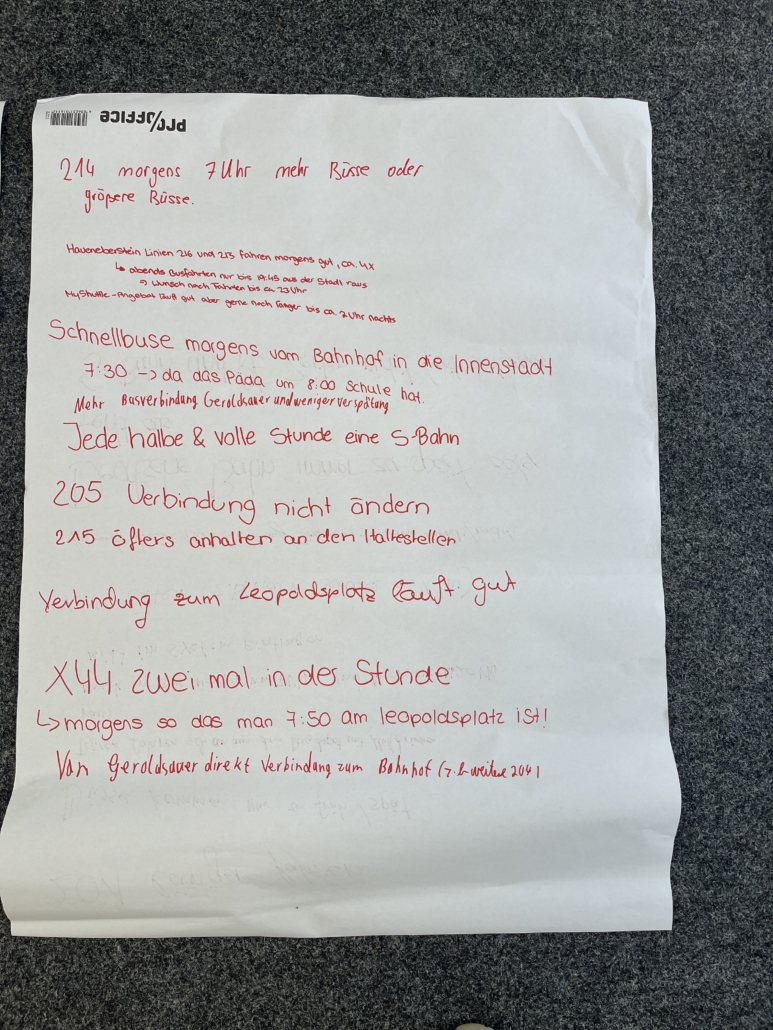 PRO/OFFICE
214 morgens 7 Uhr mehr Büsse oder
größere Büsse.
Haueneberstein Linien 216 und 213 fahren morgens gut, ca. 4x
↳ abends Busfahrten nur bis 19:45 aus der Stadt raus
⇒ Wunsch nach Fahrten bis ca. 23 Uhr
MyShuttle-Angebot läuft gut aber gerne noch länger bis ca. 2 Uhr nachts
Schnellbuse morgens vom Bahnhof in die Innenstadt
7:30 → da das Päda um 8:00 Schule hat.
Mehr Busverbindung Geroldsauer und weniger verspätung
Jede halbe & volle Stunde eine S-Bahn
205 Verbindung nicht ändern
215 öfters anhalten an den Haltestellen
Verbindung zum Leopoldsplatz läuft gut
X44 zwei mal in der Stunde
↳ morgens so das man 7:50 am leopoldsplatz ist!
Von Geroldsauer direkt Verbindung zum Bahnhof (z.b. weitere 204)